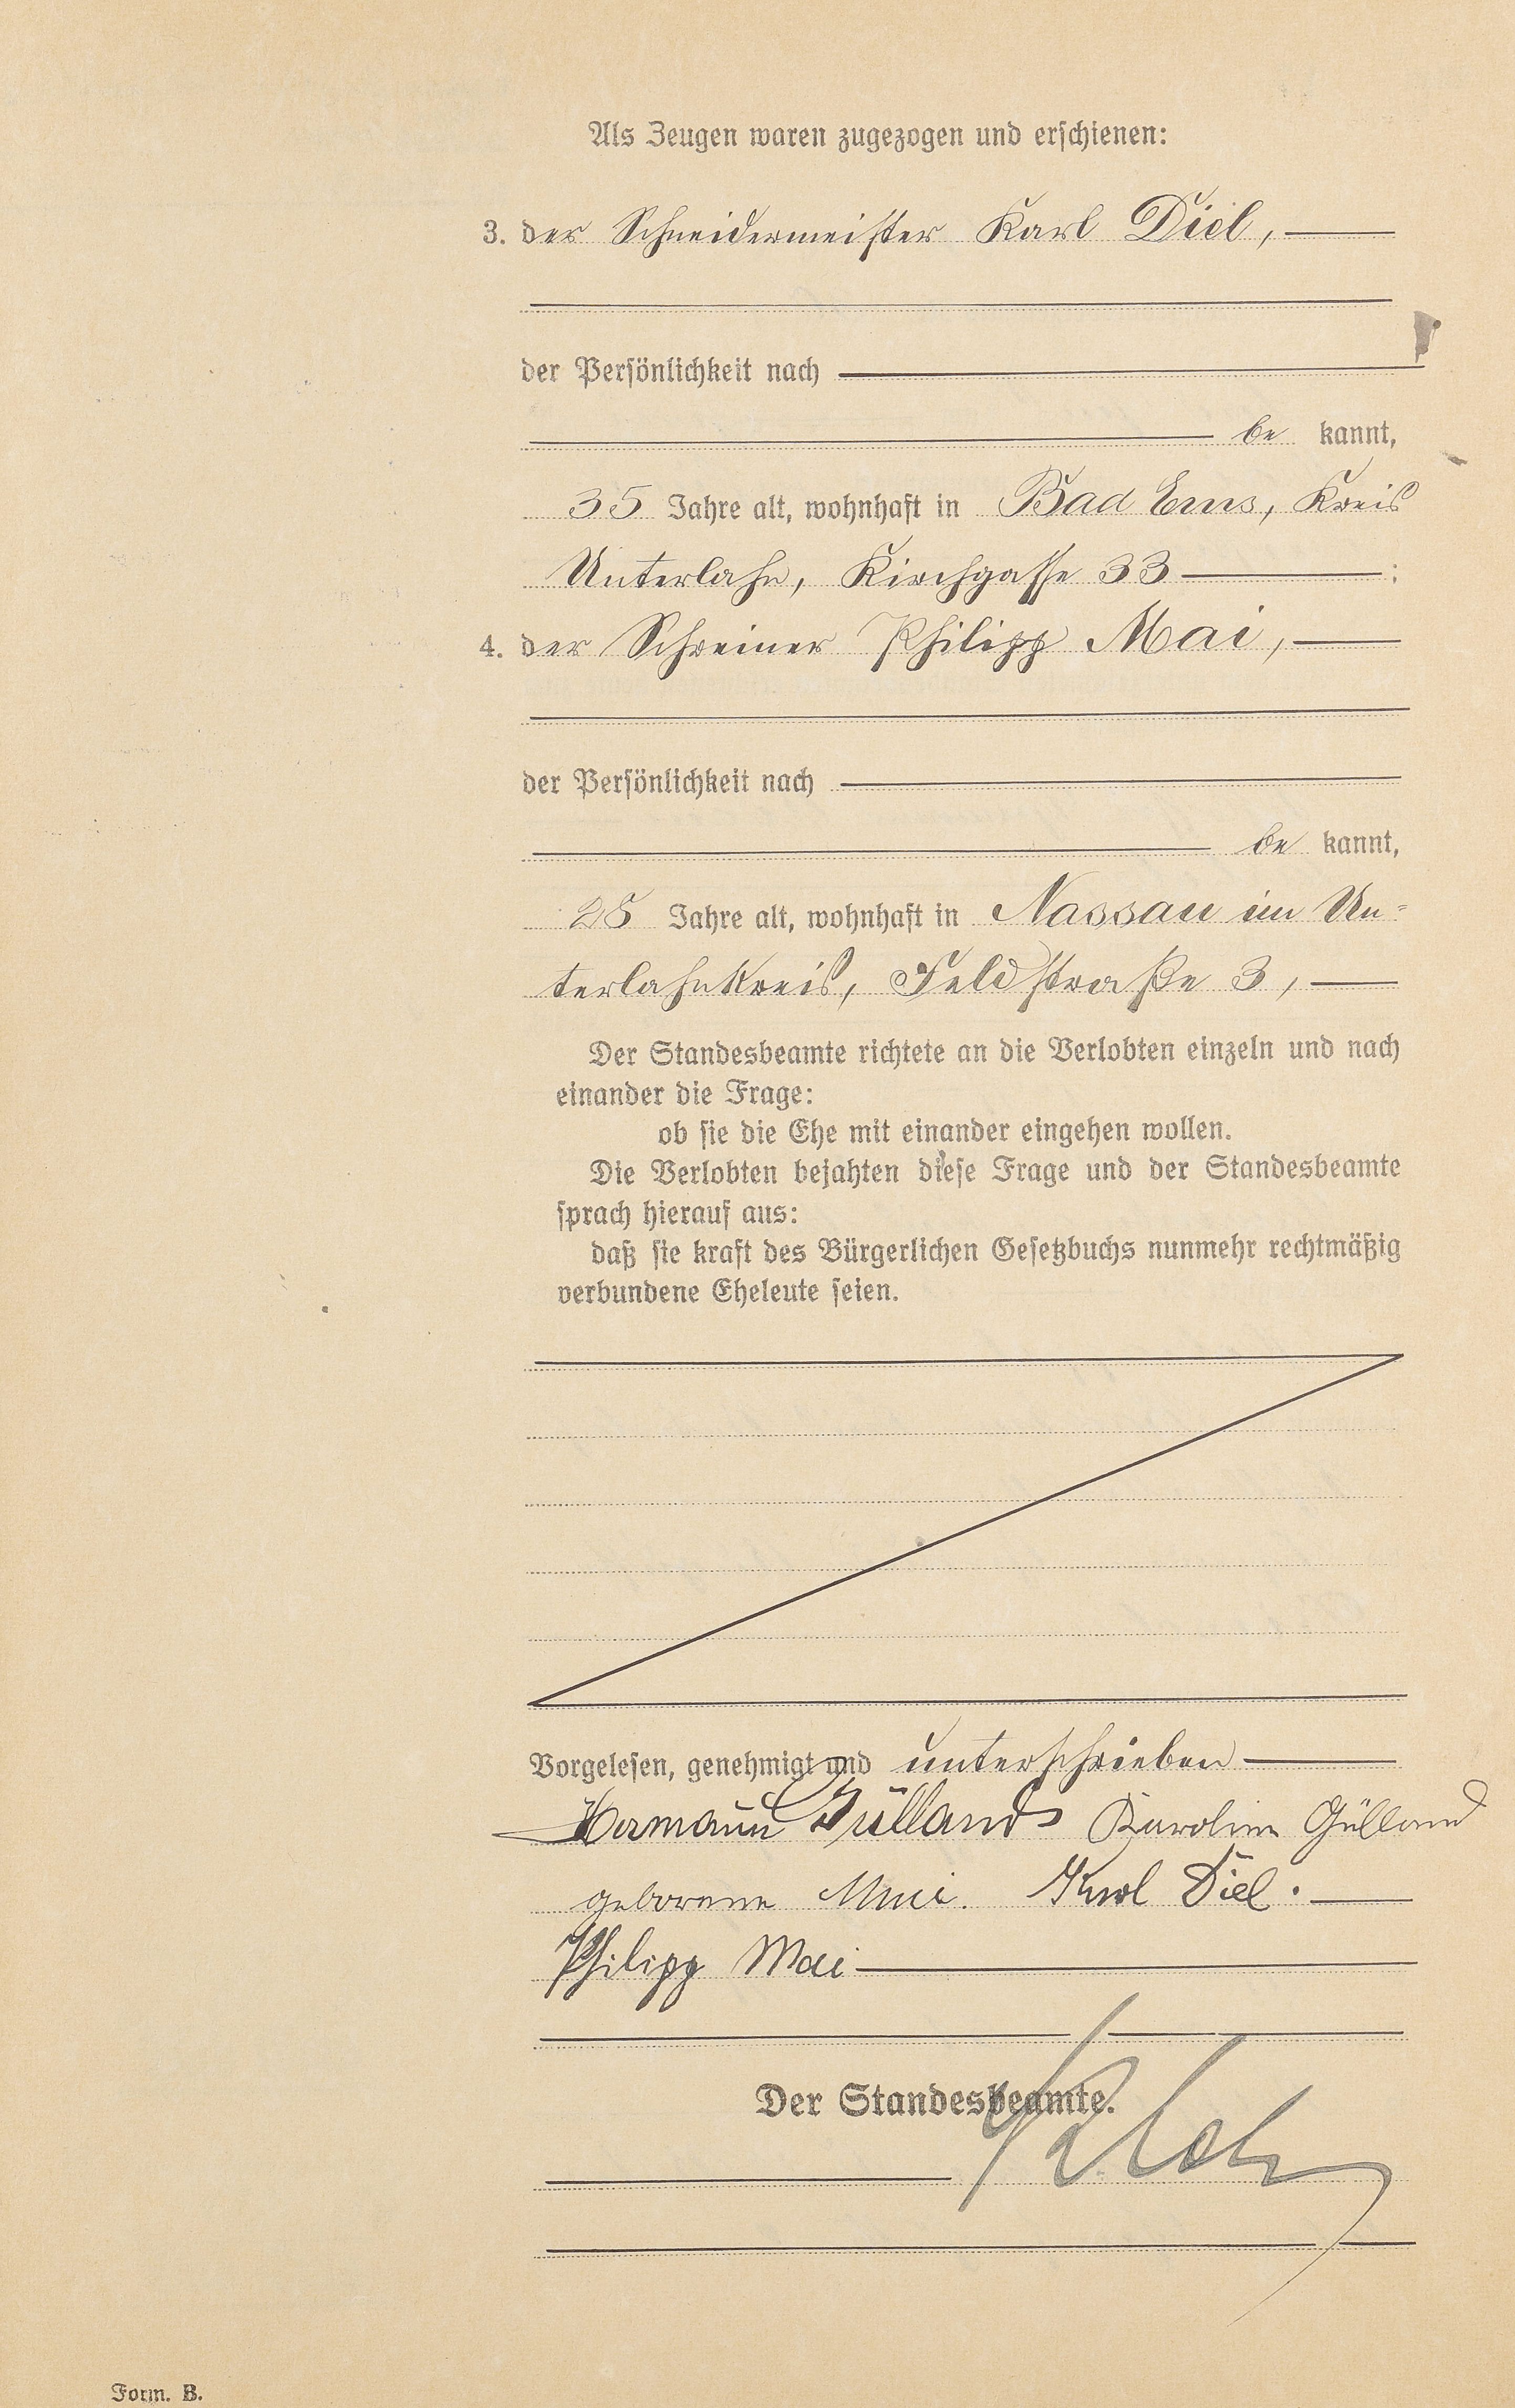 Als Zeugen waren zugezogen und erschienen:
3. der Schneidermeister Karl Diel,
der Persönlichkeit nach
be kannt,
35 Jahre alt, wohnhaft in Bad Ems, Kreis
Unterlahn, Kirchgasse 33 ;
4. der Schreiner Philipp Mai,
der Persönlichkeit nach
be kannt,
28 Jahre alt, wohnhaft in Nassau im Un-
terlahnkreis, Feldstraße 3,
Der Standesbeamte richtete an die Verlobten einzeln und nach
einander die Frage:
ob sie die Ehe mit einander eingehen wollen.
Die Verlobten bejahten diese Frage und der Standesbeamte
sprach hierauf aus:
daß sie kraft des Bürgerlichen Gesetzbuchs nunmehr rechtmäßig
verbundene Eheleute seien.
Vorgelesen, genehmigt und unterschrieben
Hermann Gülland Karoline Gülland
geborene Mai. Karl Diel.
Philipp Mai
Der Standesbeamte.
Form. B.